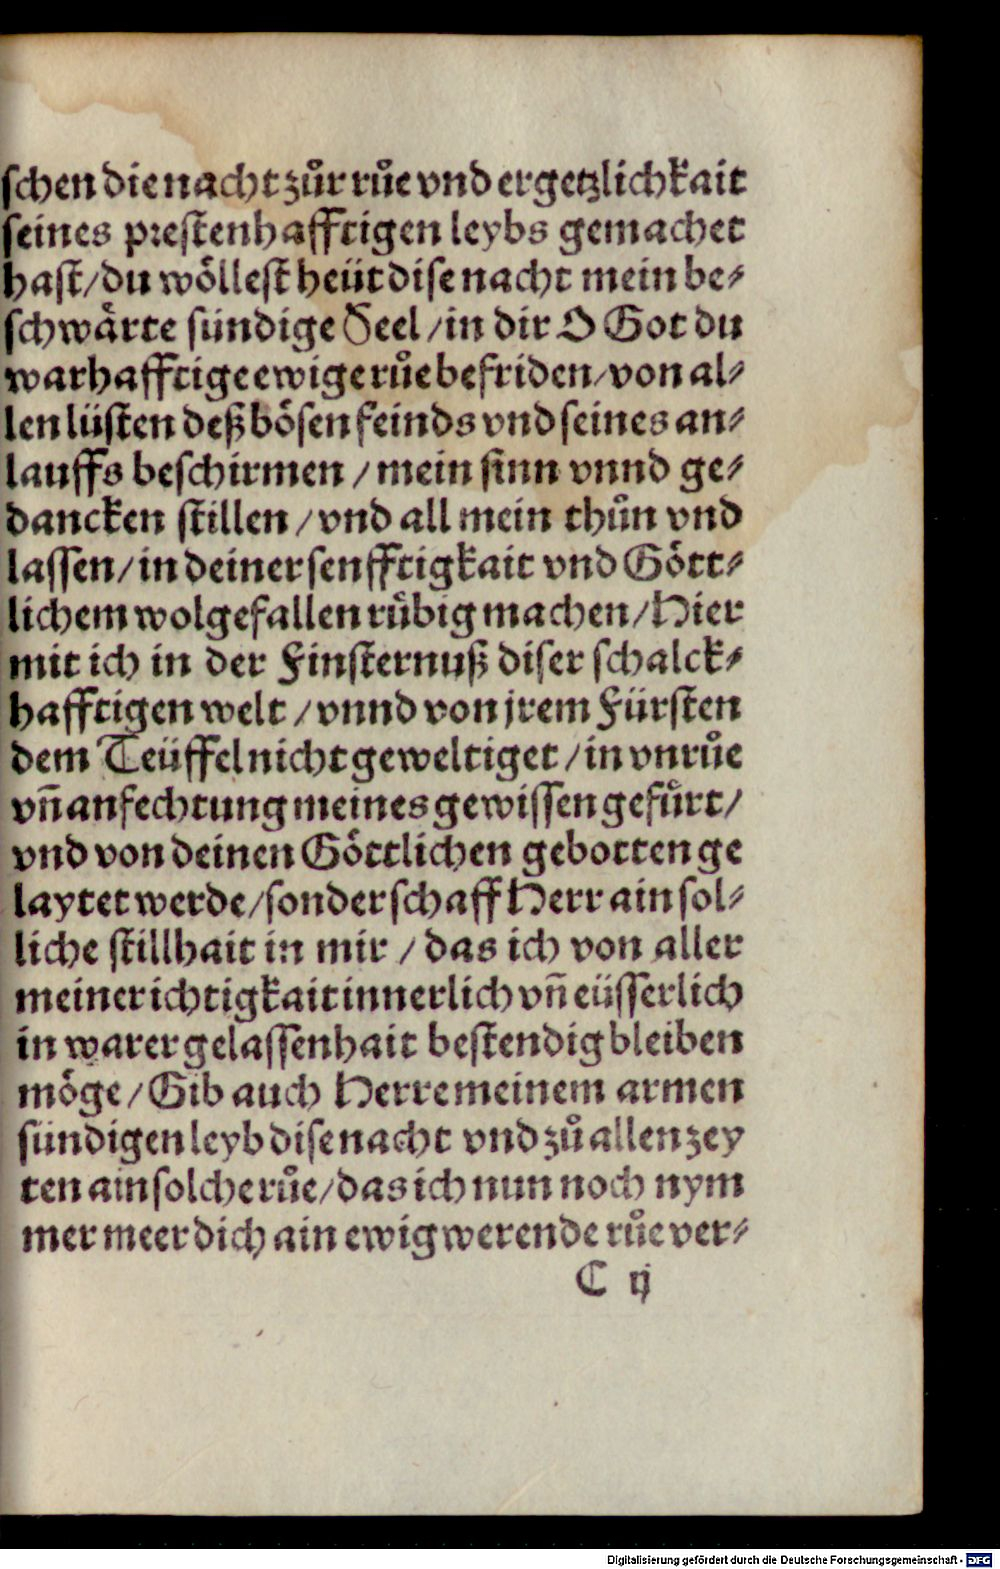 schen die nacht zůr růe vnd ergetzlichkait
seines prestenhafftigen leybs gemachet
hast/du wöllest heüt dise nacht mein be⸗
schwärte sündige Seel/in dir O Got du
warhafftige ewige růe befriden/von al⸗
len lüsten deß bösen feinds vnd seines an⸗
lauffs beschirmen/mein sinn vnnd ge⸗
dancken stillen/vnd all mein thůn vnd
lassen/in deiner senfftigkait vnd Gött⸗
lichem wolgefallen růbig machen/Hier
mit ich in der Finsternuß diser schalck⸗
hafftigen welt/vnnd von jrem Fürsten
dem Teüffel nicht geweltiget/in vnrůe
vn̄ anfechtung meines gewissen gefůrt/
vnd von deinen Göttlichen gebotten ge
laytet werde/sonder schaff Herr ain sol⸗
liche stillhait in mir/das ich von aller
meiner ichtigkait innerlich vn̄ eüsserlich
in warer gelassenhait bestendig bleiben
möge/Gib auch Herre meinem armen
sündigen leyb dise nacht vnd zů allen zey
ten ain solche růe/das ich nun noch nym
mer meer dich ain ewig werende růe ver⸗
C ij
Digitalisierung gefördert durch die Deutsche Forschungsgemeinschaft - DFG